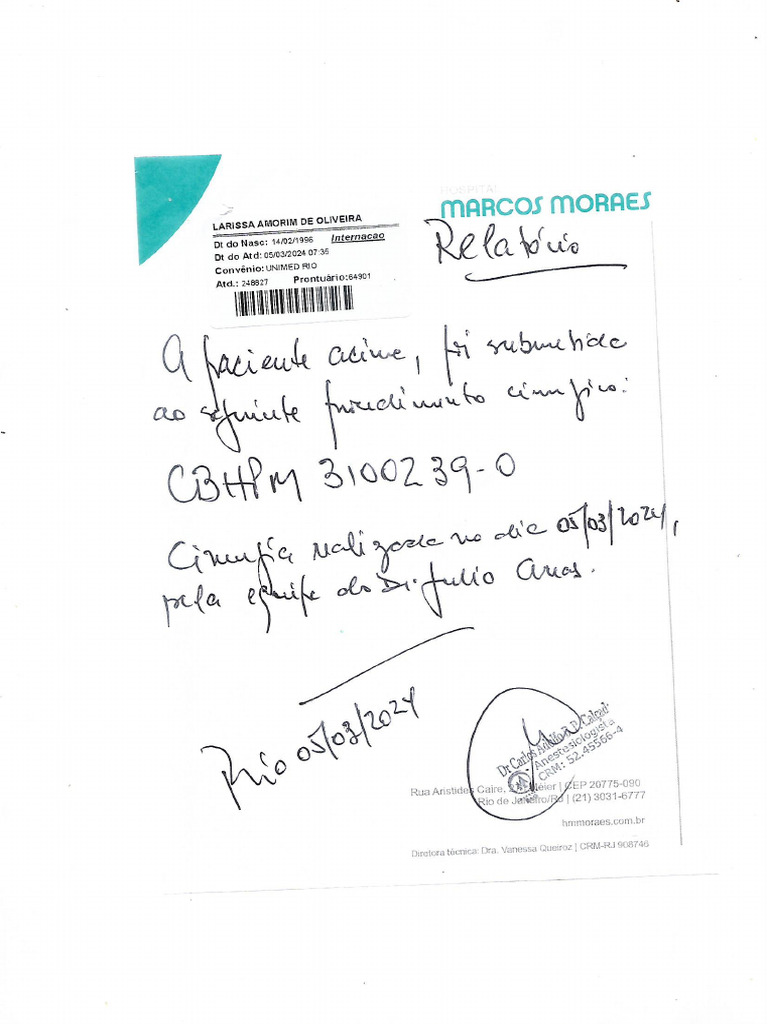 HOSPITAL
MARCOS MORAES
LARISSA AMORIM DE OLIVEIRA
Dt do Nasc: 14/02/1996 Internacao
Dt do Atd: 05/03/2024 07:35
Convênio: UNIMED RIO
Atd.: 248827 Prontuário: 64901
Relatório
A paciente acima, foi submetida
ao seguinte procedimento cirurgico:
CBHPM 3100239-0
Cirurgia realizada no dia 05/03/2024,
pela equipe do Dr. Julio
Rio 05/03/2024
Dr Carlos
Anestesiologista
CRM: 52.45566-4
Rua Aristides Caire, Méier | CEP 20775-090
Rio de Janeiro/RJ | (21) 3031-6777
hmmoraes.com.br
Diretora técnica: Dra. Vanessa Queiroz | CRM-RJ 908746